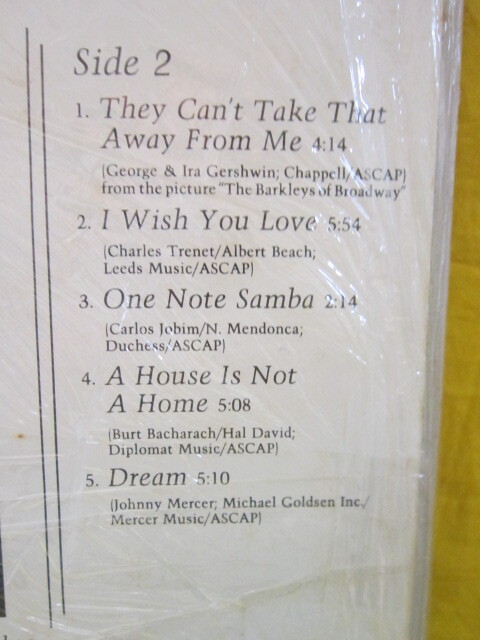 Side 2
1. They Can't Take That
Away From Me 4:14
(George & Ira Gershwin; Chappell/ASCAP)
from the picture "The Barkleys of Broadway"
2. I Wish You Love 5:54
(Charles Trenet/Albert Beach;
Leeds Music/ASCAP)
3. One Note Samba 2:14
(Carlos Jobim/N. Mendonca;
Duchess/ASCAP)
4. A House Is Not
A Home 5:08
(Burt Bacharach/Hal David;
Diplomat Music/ASCAP)
5. Dream 5:10
(Johnny Mercer; Michael Goldsen Inc./
Mercer Music/ASCAP)